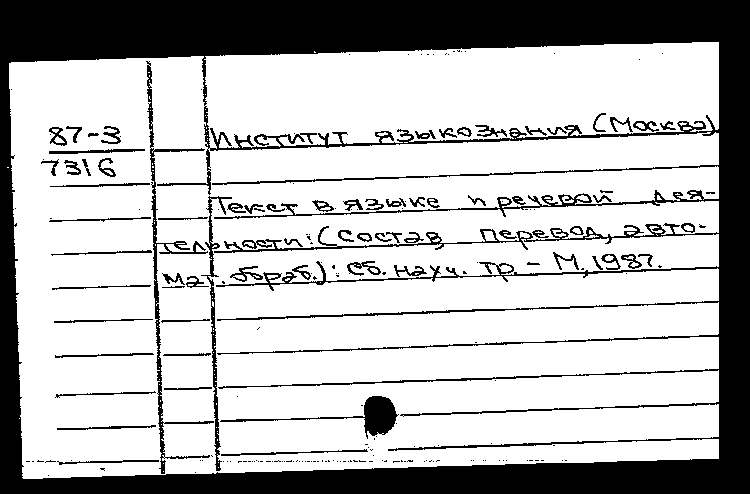 87-3 Институт языкознания (Москва)
7316
Текст в языке и речевой дея-
тельности: (Состав, перевод, авто-
мат. обраб.): Сб. науч. тр – М, 1987.